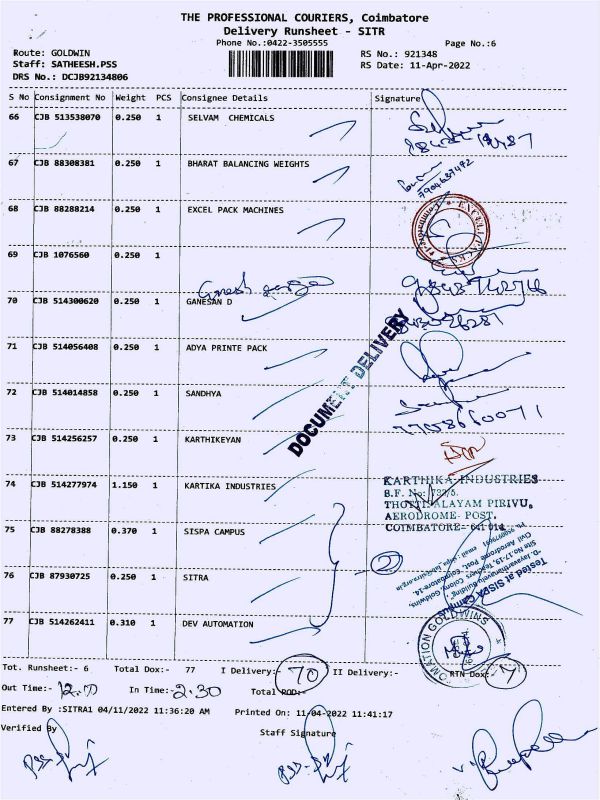 THE PROFESSIONAL COURIERS, Coimbatore
Delivery Runsheet - SITR
Phone No.:0422-3505555
Page No.:6
Route: GOLDWIN
RS No.: 921348
Staff: SATHEESH.PSS
RS Date: 11-Apr-2022
DRS No.: DCJB92134806
S No Consignment No Weight PCS Consignee Details Signature
66 CJB 513538070 0.250 1 SELVAM CHEMICALS
67 CJB 88308381 0.250 1 BHARAT BALANCING WEIGHTS
7904687492
68 CJB 88288214 0.250 1 EXCEL PACK MACHINES
69 CJB 1076560 0.250 1
Ganesh
70 CJB 514300620 0.250 1 GANESAN D
DOCUMENT DELIVERY
71 CJB 514056408 0.250 1 ADYA PRINTE PACK
72 CJB 514014858 0.250 1 SANDHYA
73 CJB 514256257 0.250 1 KARTHIKEYAN
74 CJB 514277974 1.150 1 KARTIKA INDUSTRIES
KARTHIKA INDUSTRIES
S.F. No: 739/5.
THOTTIPALAYAM PIRIVU,
AERODROME POST,
COIMBATORE - 641 014
75 CJB 88278388 0.370 1 SISPA CAMPUS
2
Tested at SISPA Campus
76 CJB 87930725 0.250 1 SITRA
77 CJB 514262411 0.310 1 DEV AUTOMATION
Tot. Runsheet:- 6 Total Dox:- 77 I Delivery:- 70 II Delivery:- RTN Dox:-
Out Time:- In Time:- 2.30 Total POD:-
Entered By :SITRA1 04/11/2022 11:36:20 AM Printed On: 11-04-2022 11:41:17
Verified By Staff Signature